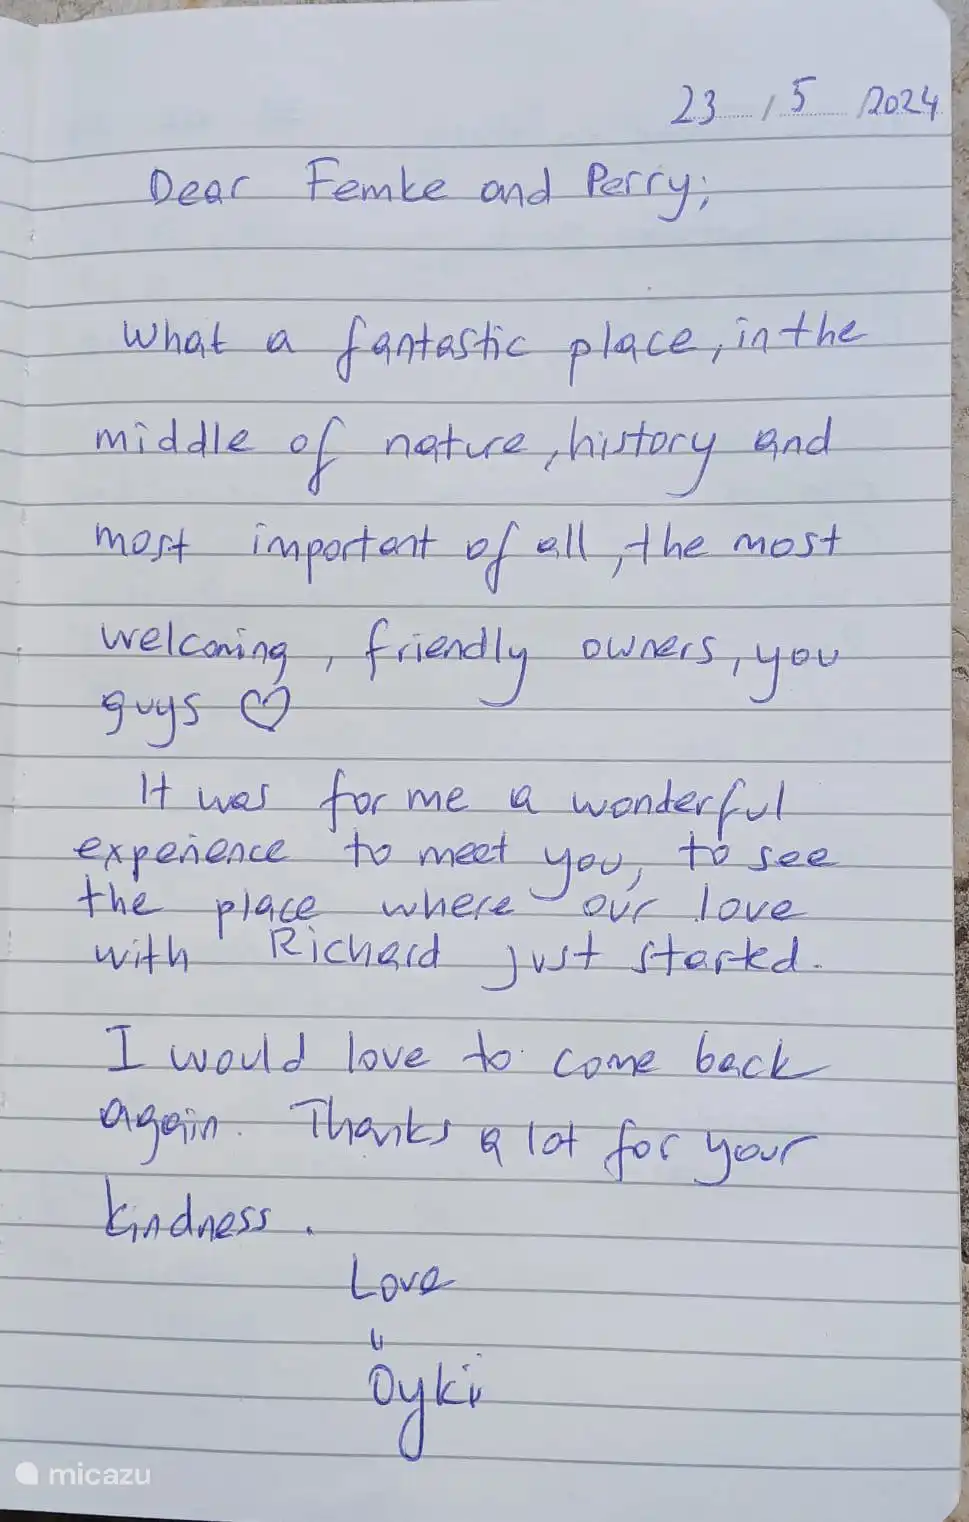 23 / 5 /2024
Dear Femke and Perry;
What a fantastic place, in the
middle of nature, history and
most important of all, the most
welcoming, friendly owners, you
guys ♡
It was for me a wonderful
experience to meet you, to see
the place where our love
with Richard just started.
I would love to come back
again. Thanks a lot for your
kindness.
Love
Öykü
micazu